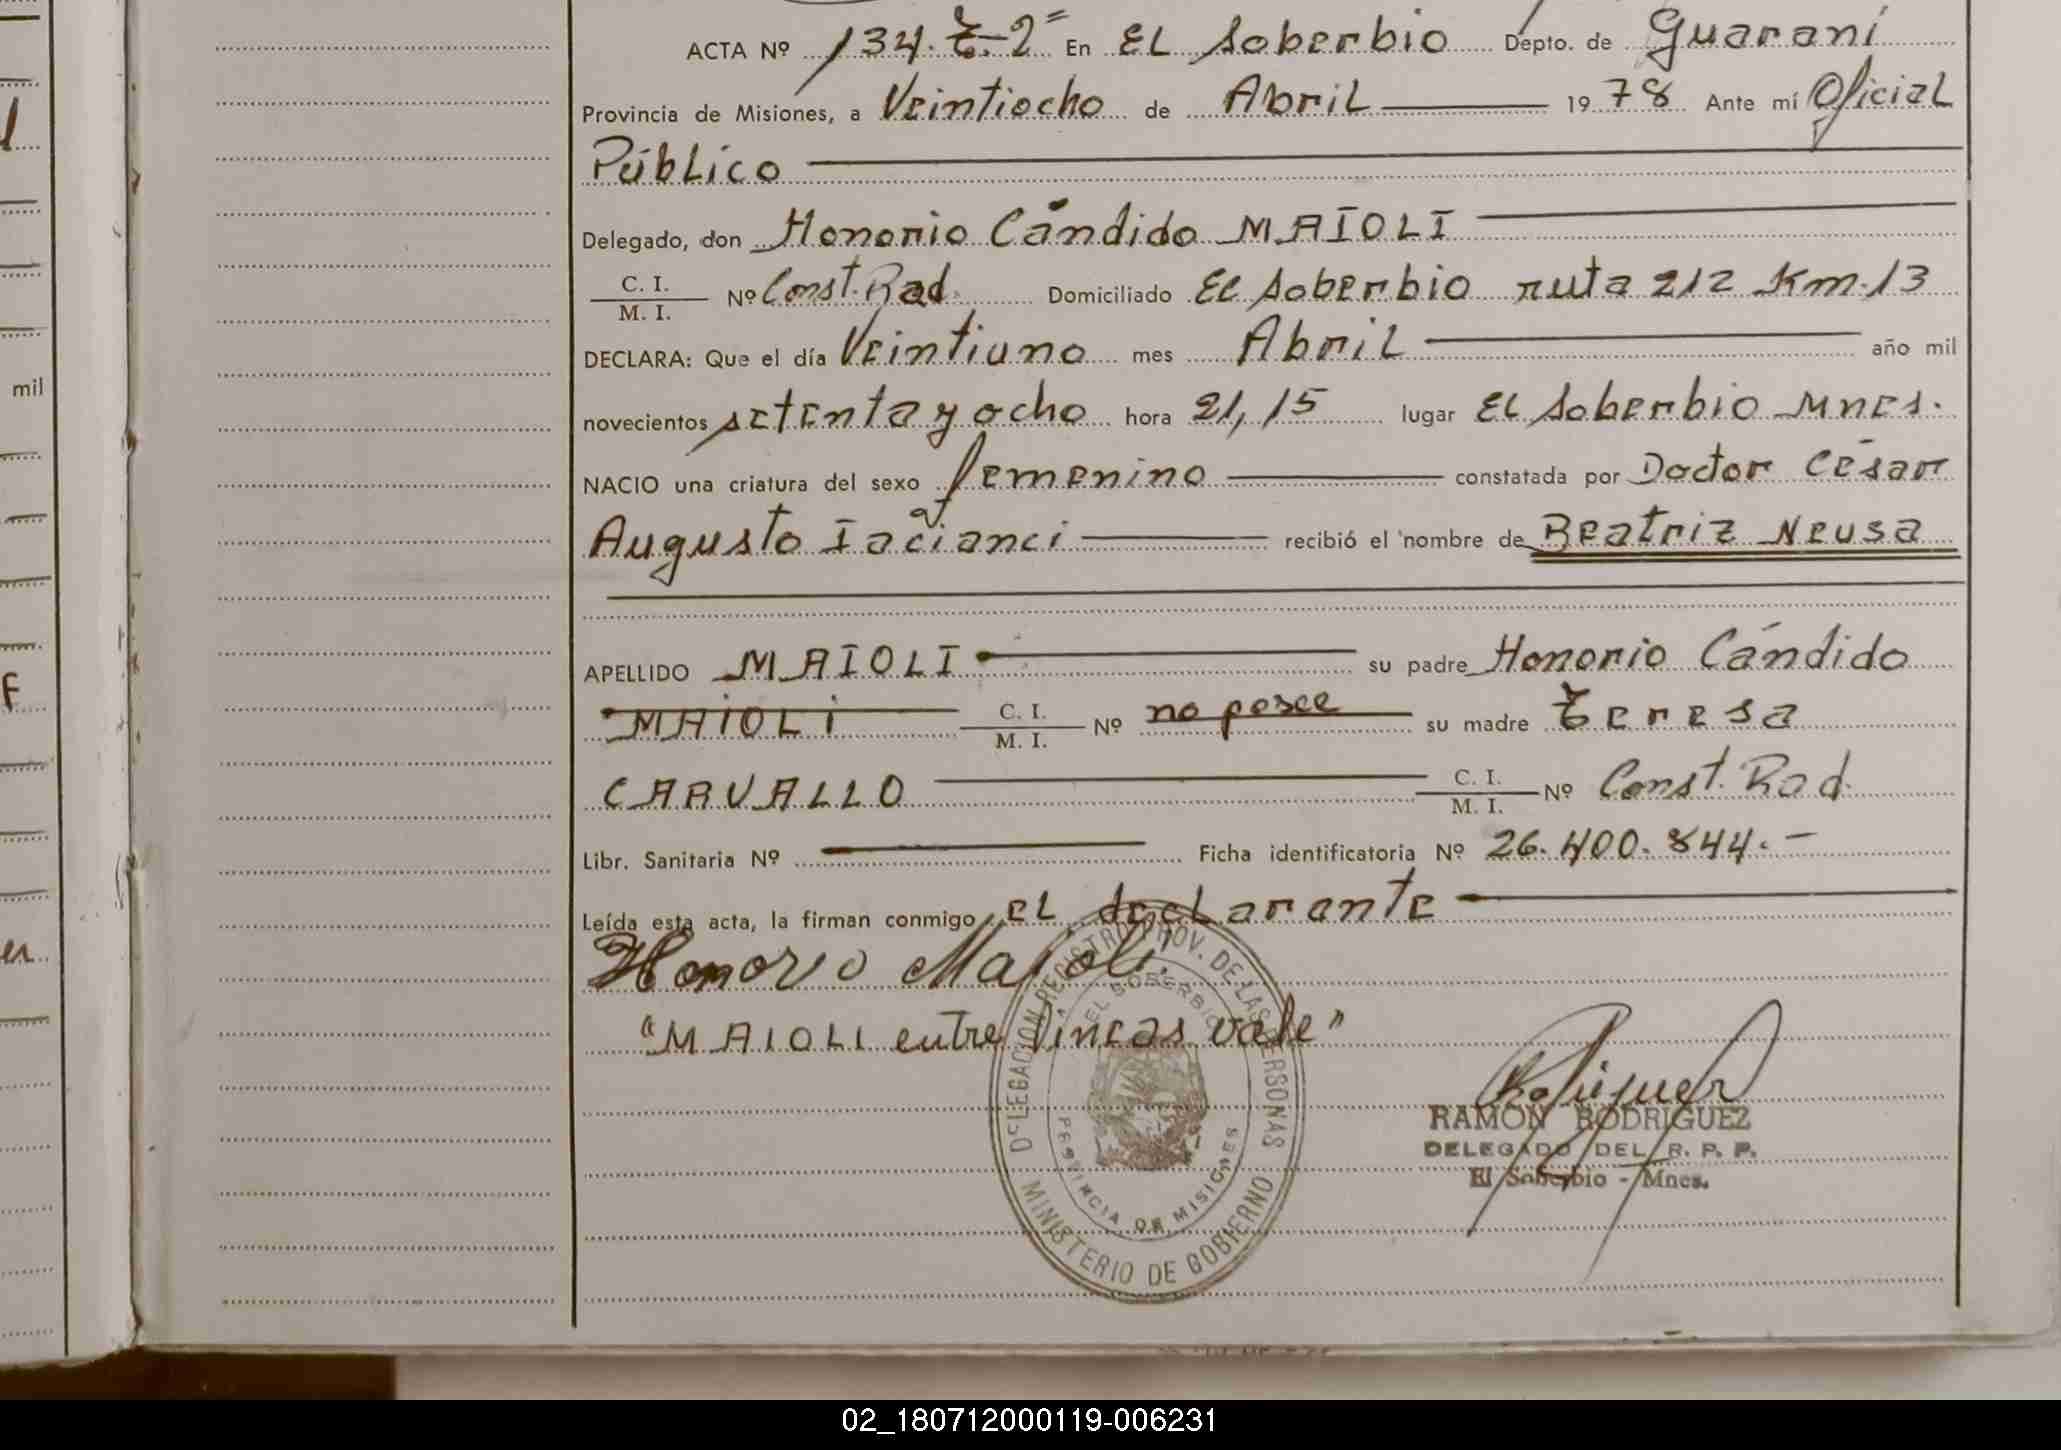 ACTA Nº 134. T-2= En EL Soberbio Depto. de Guaraní
Provincia de Misiones, a Veintiocho de Abril 1978 Ante mí Oficial
Público
Delegado, don Honorio Cándido MAIOLI
C. I.
M. I. Nº Const. Rad. Domiciliado El Soberbio ruta 212 Km. 13
DECLARA: Que el día Veintiuno mes Abril año mil
novecientos setenta y ocho hora 21,15 lugar El Soberbio Mnes.
NACIO una criatura del sexo femenino constatada por Doctor César
Augusto recibió el nombre de Beatriz Neusa
APELLIDO MAIOLI su padre Honorio Cándido
MAIOLI C. I.
M. I. Nº no posee su madre Teresa
CARVALLO C. I.
M. I. Nº Const. Rad.
Libr. Sanitaria Nº Ficha identificatoria Nº 26.400.844.-
Leída esta acta, la firman conmigo el declarante
Honorio Maioli
"MAIOLI entre lineas vale"
DELEGACION REGISTRO PROV. DE LAS PERSONAS
EL SOBERBIO
PROVINCIA DE MISIONES
MINISTERIO DE GOBIERNO
RAMON RODRIGUEZ
DELEGADO DEL R. P. P.
El Soberbio - Mnes.
mil
02_180712000119-006231